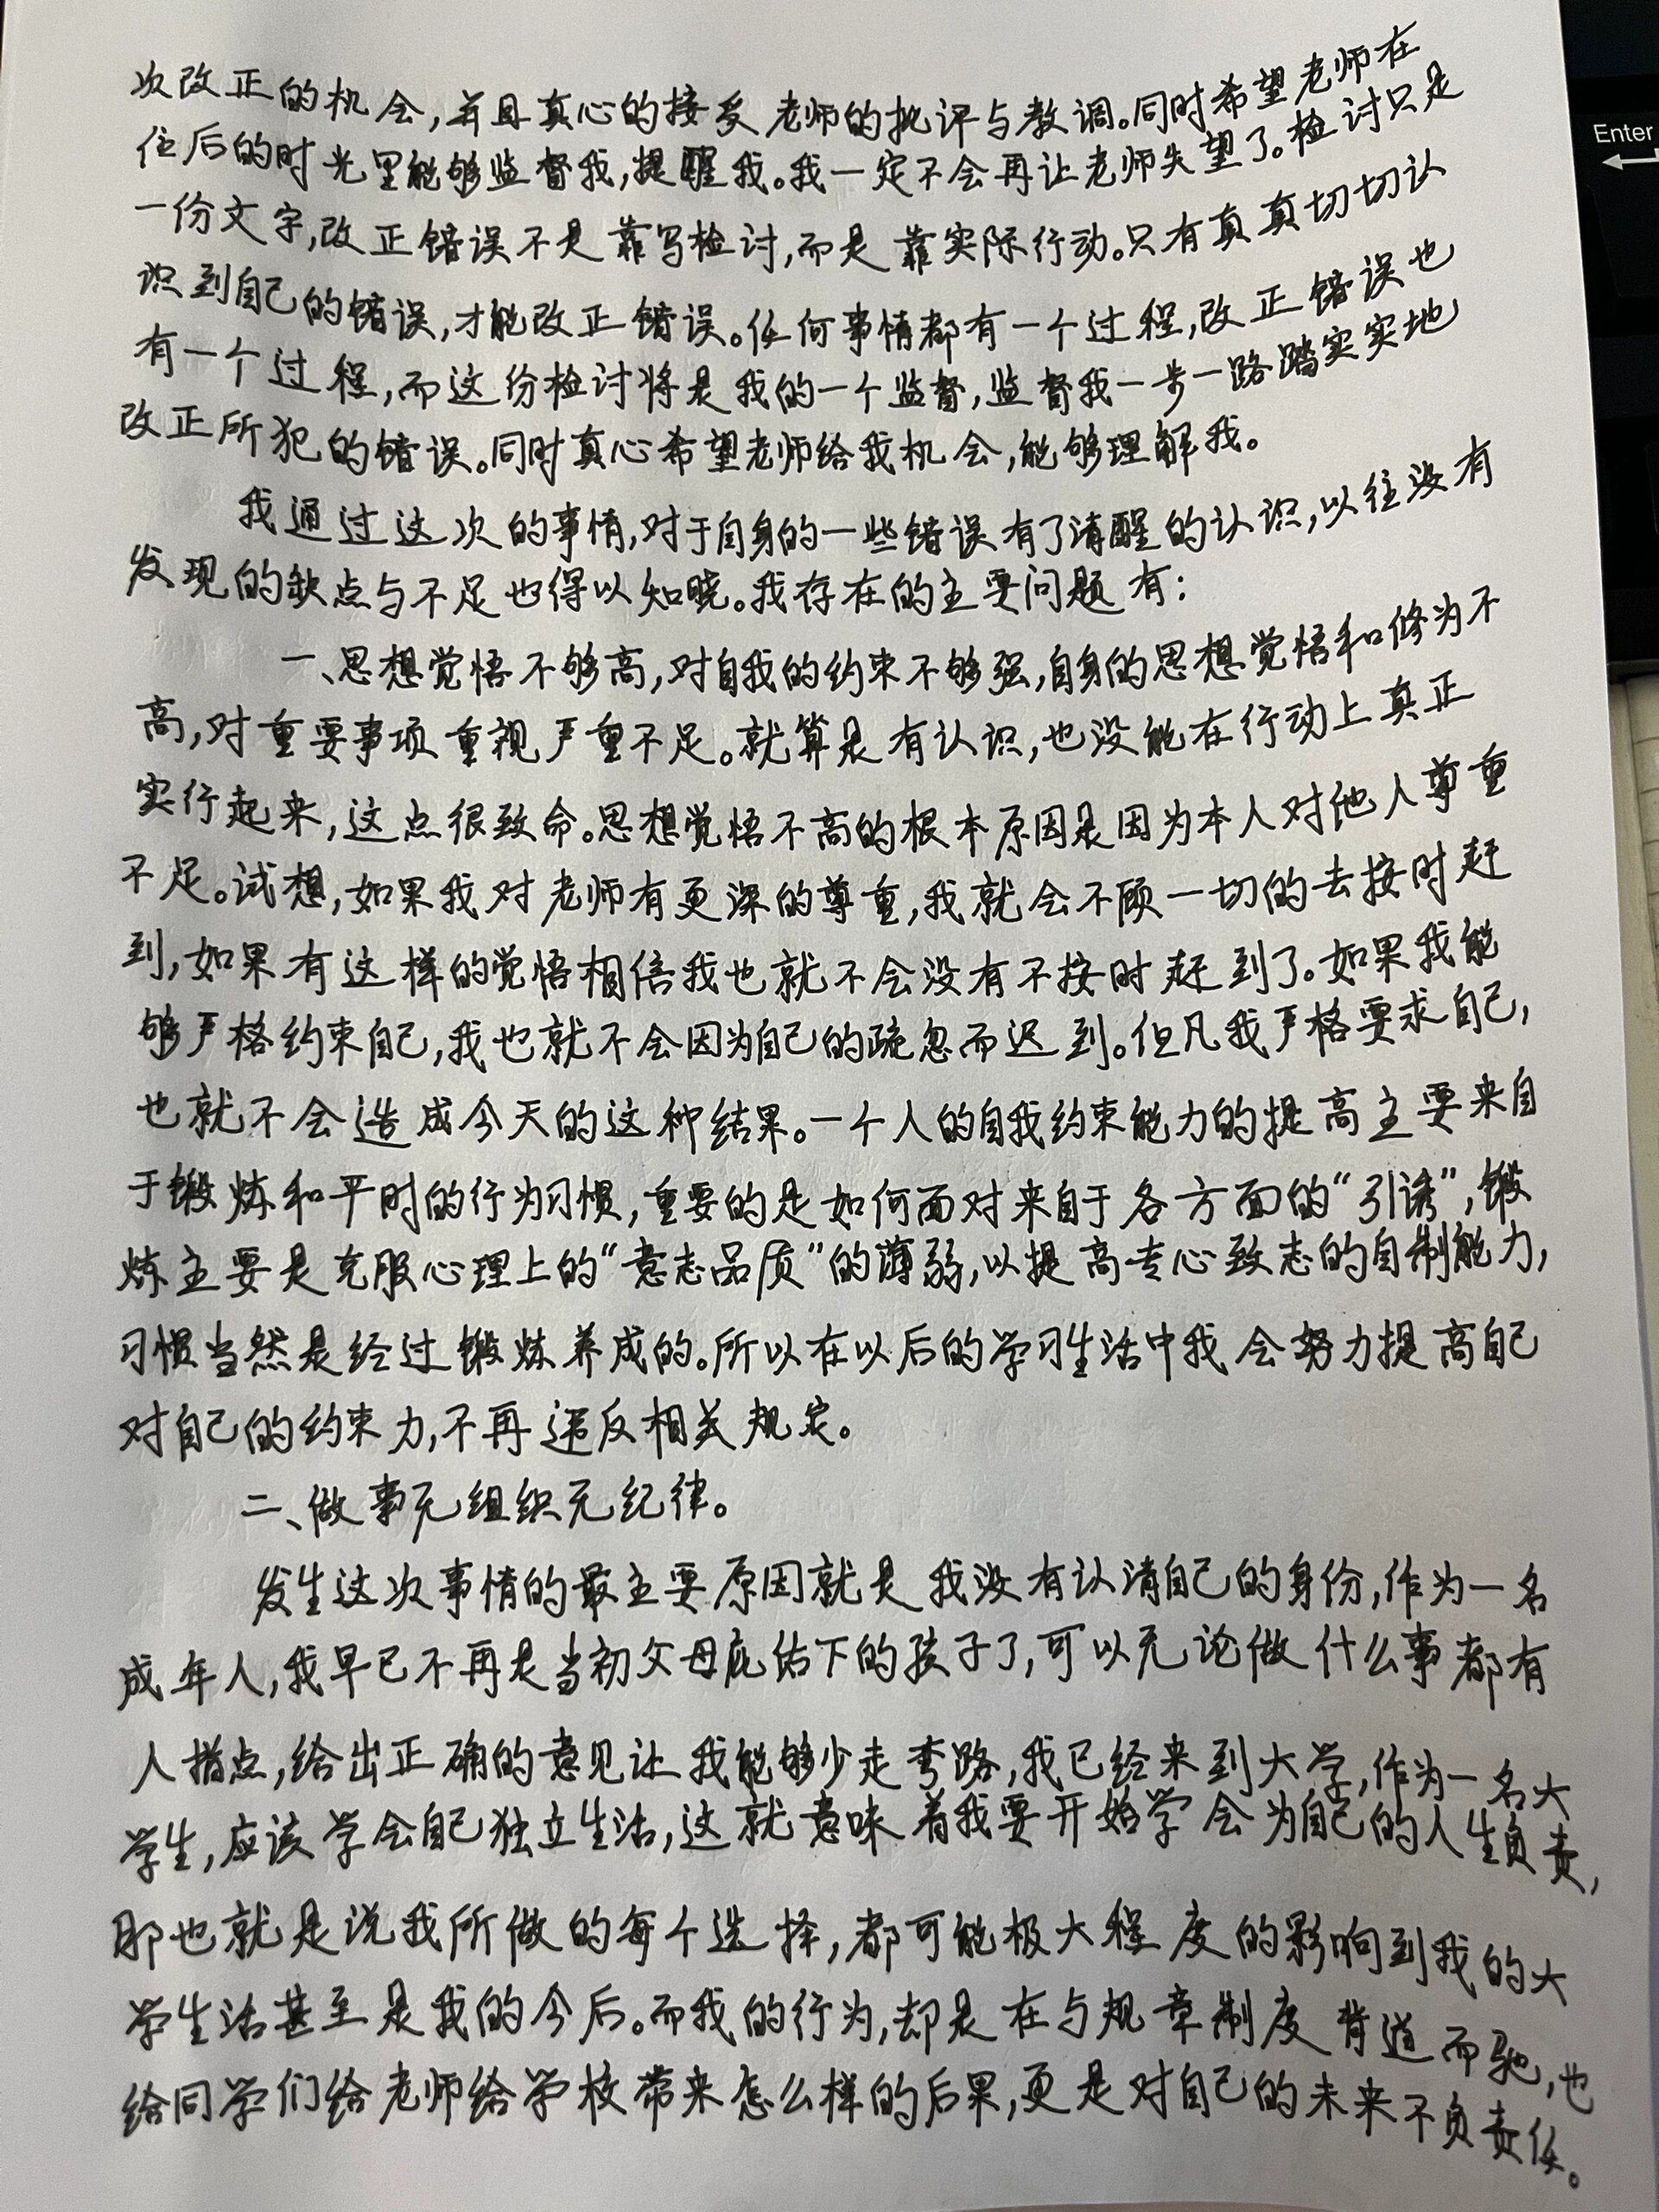 次改正的机会,并且真心的接受老师的批评与教调。同时希望老师在
往后的时光里能够监督我,提醒我。我一定不会再让老师失望了。检讨只是
一份文字,改正错误不是靠写检讨,而是靠实际行动。只有真真切切认
识到自己的错误,才能改正错误。任何事情都有一个过程,改正错误也
有一个过程,而这份检讨将是我的一个监督,监督我一步一路踏实实地
改正所犯的错误。同时真心希望老师给我机会,能够理解我。
我通过这次的事情,对于自身的一些错误有了清醒的认识,以往没有
发现的缺点与不足也得以知晓。我存在的主要问题有:
一、思想觉悟不够高,对自我的约束不够强,自身的思想觉悟和修为不
高,对重要事项重视严重不足。就算是有认识,也没能在行动上真正
实行起来,这点很致命。思想觉悟不高的根本原因是因为本人对他人尊重
不足。试想,如果我对老师有更深的尊重,我就会不顾一切的去按时赶
到,如果有这样的觉悟相信我也就不会没有不按时赶到了。如果我能
够严格约束自己,我也就不会因为自己的疏忽而迟到。但凡我严格要求自己,
也就不会造成今天的这种结果。一个人的自我约束能力的提高主要来自
于锻炼和平时的行为习惯,重要的是如何面对来自于各方面的“引诱”,锻
炼主要是克服心理上的“意志品质”的薄弱,以提高专心致志的自制能力,
习惯当然是经过锻炼养成的。所以在以后的学习生活中我会努力提高自己
对自己的约束力,不再违反相关规定。
二、做事无组织无纪律。
发生这次事情的最主要原因就是我没有认清自己的身份,作为一名
成年人,我早已不再是当初父母庇佑下的孩子了,可以无论做什么事都有
人指点,给出正确的意见让我能够少走弯路,我已经来到大学,作为一名大
学生,应该学会自己独立生活,这就意味着我要开始学会为自己的人生负责,
那也就是说我所做的每个选择,都可能极大程度的影响到我的大
学生活甚至是我的今后。而我的行为,却是在与规章制度背道而驰,也
给同学们给老师给学校带来怎么样的后果,更是对自己的未来不负责任。